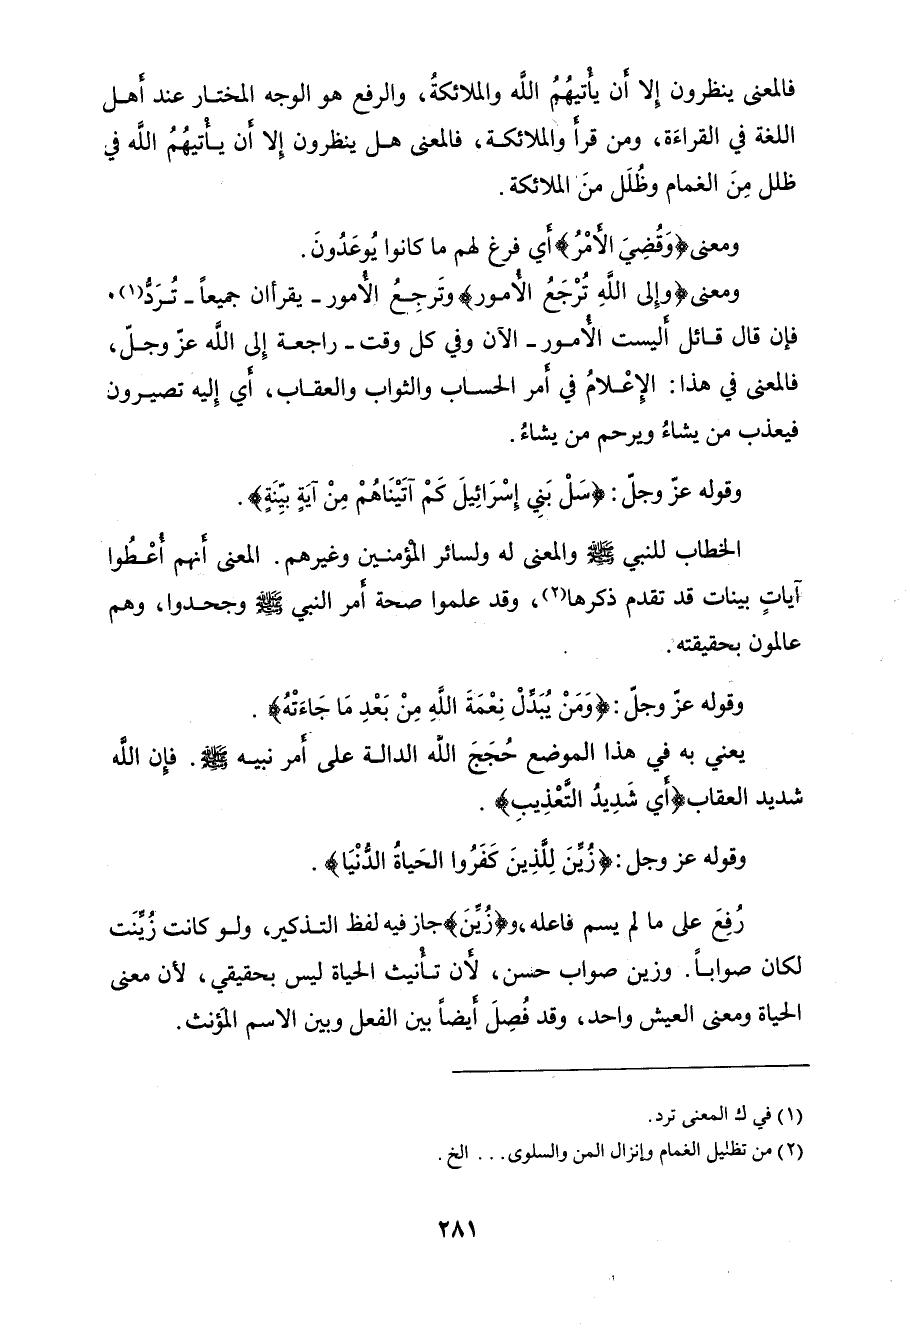 فالمعنى ينظرون إلا أَن يأْتيهُمُ اللَّه والملائكةُ، والرفع هو الوجه المختار عند أَهل
اللغة في القراءَة، ومن قرأَ والملائكة، فالمعنى هل ينظرون إلا أَن يأْتيهُمُ اللَّه في
ظلل مِنَ الغمام وظُلَل منَ الملائكة.
ومعنى ﴿وَقُضِيَ الأَمْرُ﴾ أَي فرغ لهم ما كانوا يُوعَدُونَ.
ومعنى ﴿وإلى اللَّهِ تُرْجَعُ الأُمور﴾ وتَرجِعُ الأُمور ـ يقرأان جميعاً ـ تُرَدُّ(١).
فإن قال قائل أَليست الأُمور ـ الآن وفي كل وقت ـ راجعة إلى اللَّه عزّ وجلّ،
فالمعنى في هذا: الإِعْلامُ في أَمر الحساب والثواب والعقاب، أَي إليه تصيرون
فيعذب من يشاءُ ويرحم من يشاءُ.
وقوله عزّ وجلّ: ﴿سَلْ بَنِي إِسْرَائِيلَ كَمْ آتَيْنَاهُمْ مِنْ آيَةٍ بيِّنَةٍ﴾.
الخطاب للنبي ﷺ والمعنى له ولسائر المؤمنين وغيرهم. المعنى أَنهم أُعْطُوا
آياتٍ بينات قد تقدم ذكرها(٢)، وقد علموا صحة أَمر النبي ﷺ وجحدوا، وهم
عالمون بحقيقته.
وقوله عزّ وجلّ: ﴿وَمَنْ يُبَدِّلْ نِعْمَةَ اللَّهِ مِنْ بَعْدِ مَا جَاءَتْهُ﴾.
يعني به في هذا الموضع حُجَجَ اللَّه الدالة على أَمر نبيه ﷺ. فإن اللَّه
شديد العقاب ﴿أَي شَدِيدُ التَّعْذِيبِ﴾.
وقوله عز وجل: ﴿زُيِّنَ لِلَّذِينَ كَفَرُوا الحَياةُ الدُّنْيَا﴾.
رُفِعَ على ما لم يسم فاعله، و﴿زُيِّنَ﴾ جاز فيه لفظ التذكير، ولو كانت زُيِّنَت
لكان صواباً. وزين صواب حسن، لأَن تأْنيث الحياة ليس بحقيقي، لأن معنى
الحياة ومعنى العيش واحد، وقد فُصِلَ أَيضاً بين الفعل وبين الاسم المؤنث.
(١) في ك المعنى ترد.
(٢) من تظليل الغمام وإنزال المن والسلوى. . . الخ.
٢٨١